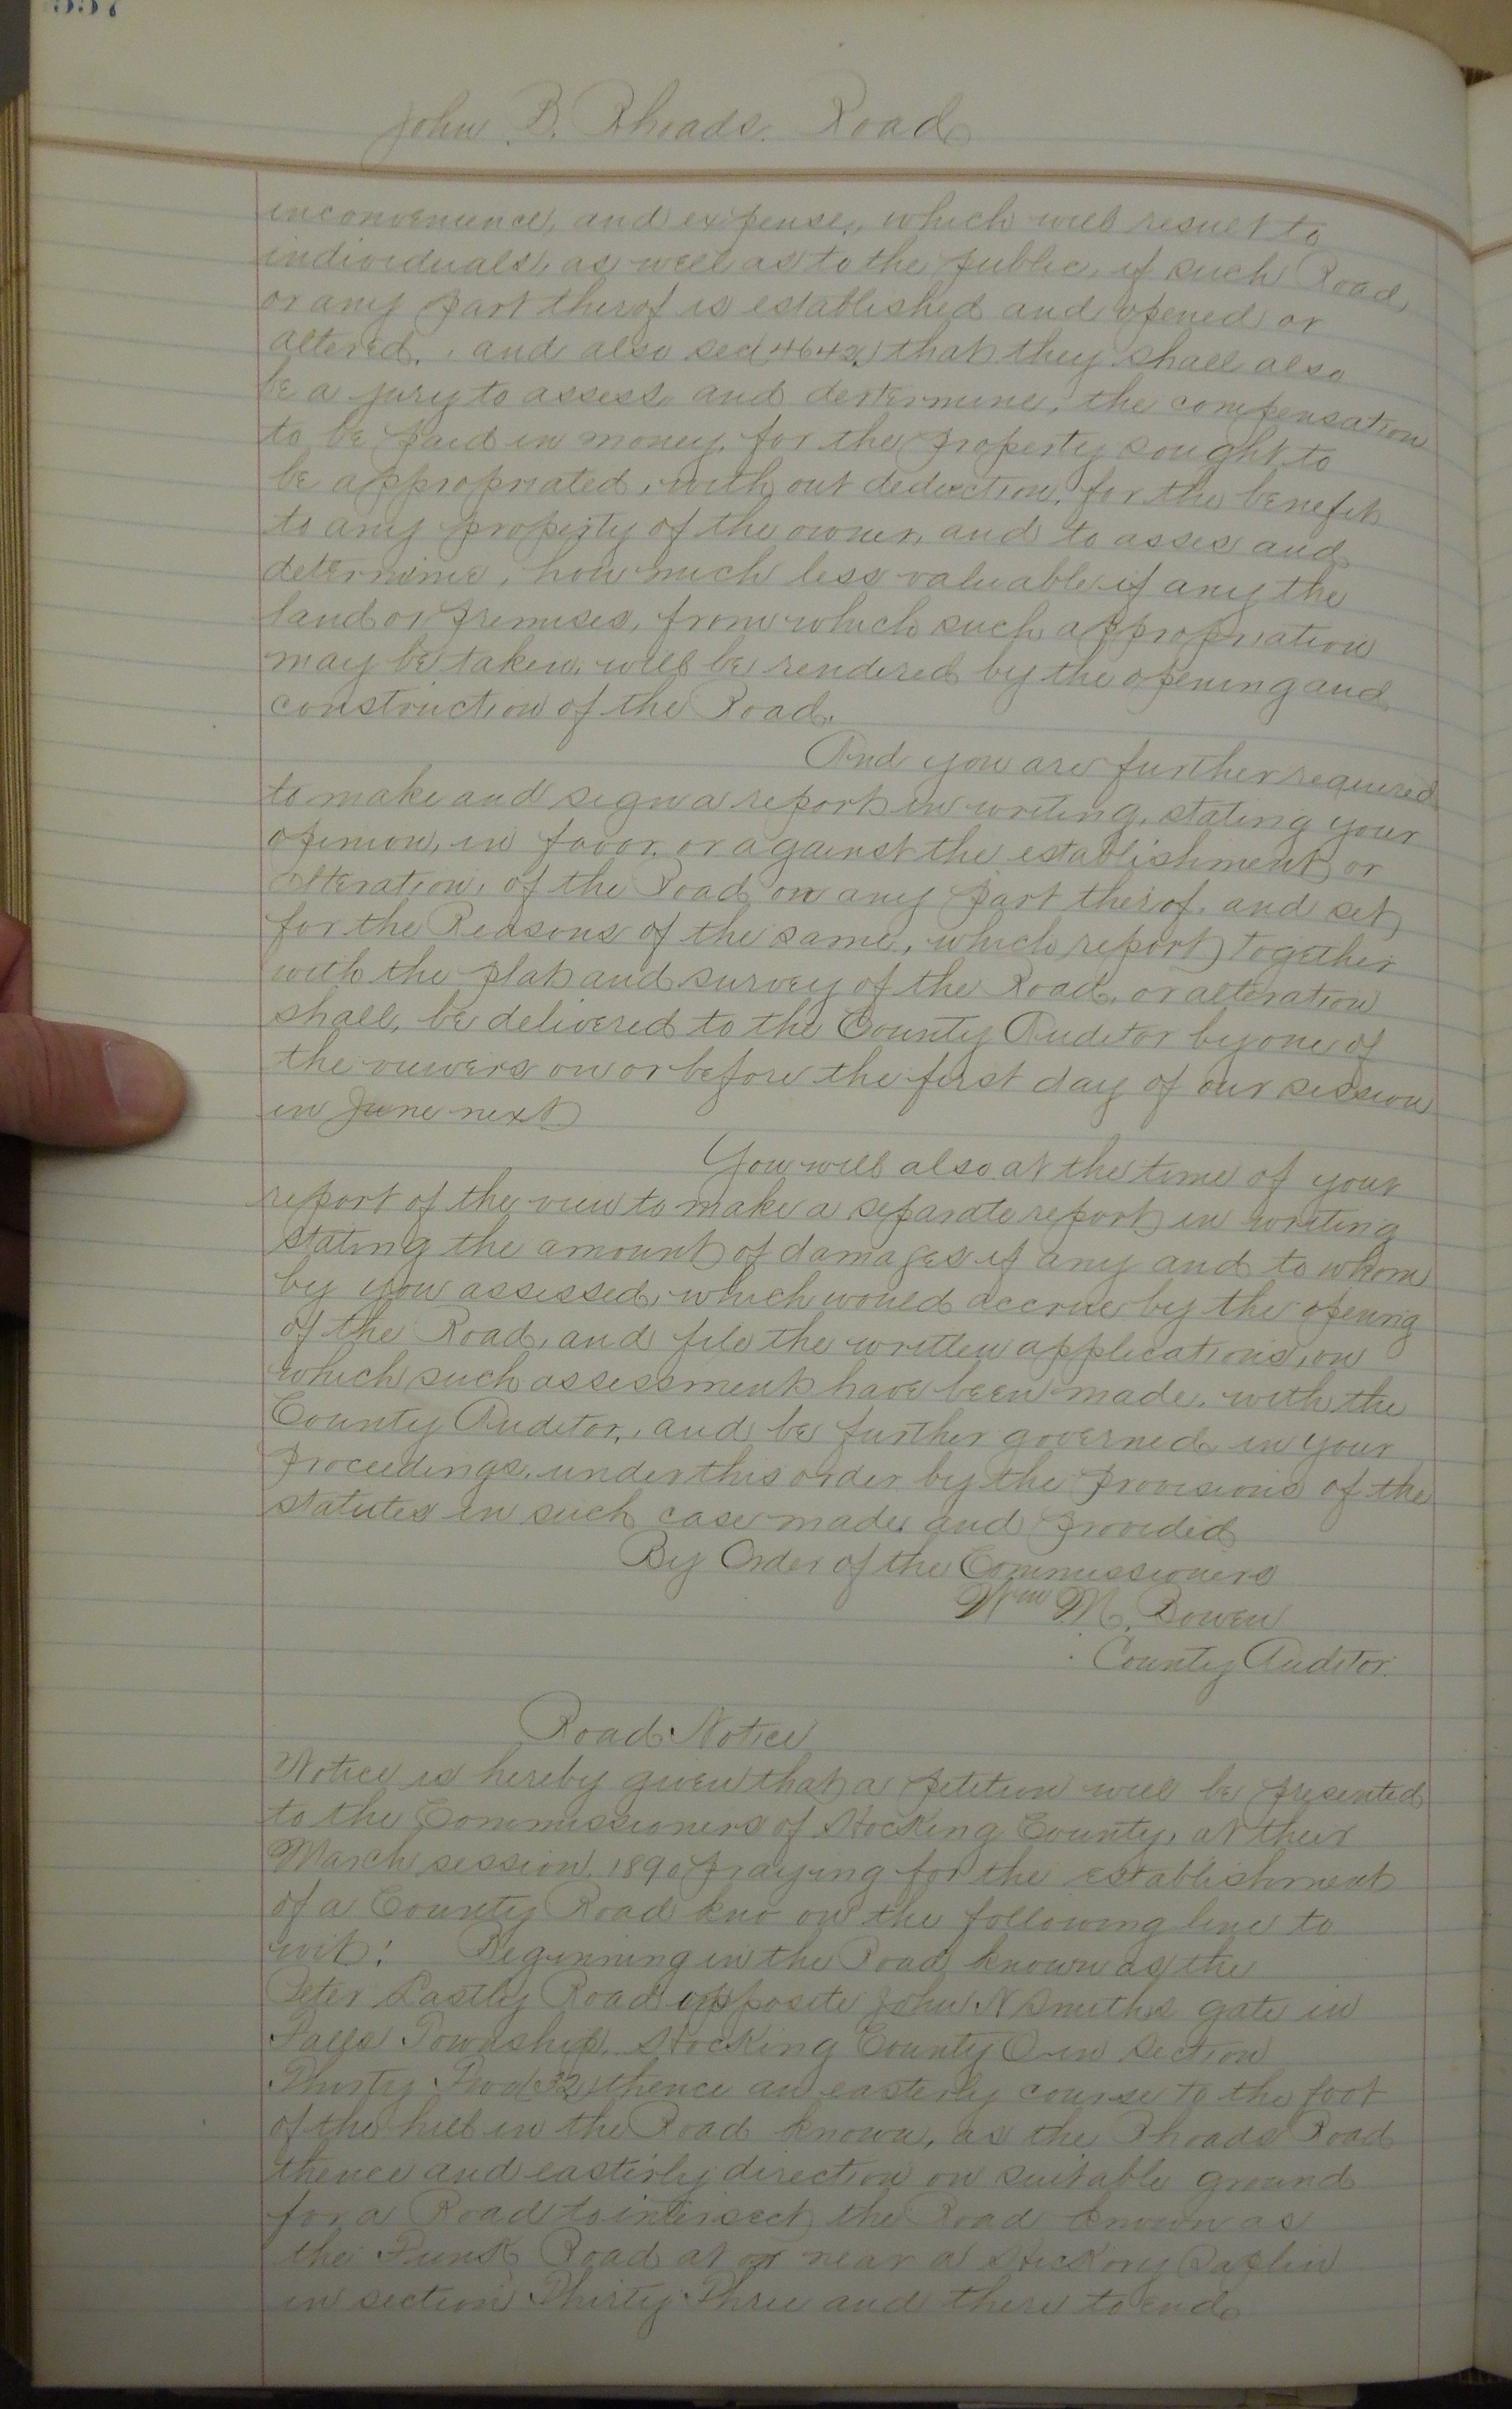 John B. Rhoads. Road
inconvenience, and expense, which will result to
individuals, as well as to the public, if such Road,
or any part therof is established and opened or
altered, and also sec (4642) that they shall also
be a jury to assess and determine, the compensation
to be paid in money, for the property sought to
be appropriated, with out deduction, for the benefit
to any property of the owner, and to asses and
determine, how much less valuable if any the
land or premises, from which such appropriation
may be taken, will be rendered by the opening and
construction of the Road.
And you are further required
to make and sign a report in writing, stating your
opinion, in favor, or against the establishment or
alteration, of the Road, on any part therof, and set
for the Reasons of the same, which report together
with the plat and survey of the Road, or alteration
shall, be delivered to the County Auditor by one of
the viewers on or before the first day of our session
in June next
You will also at the time of your
report of the view to make a separate report in writing
stating the amount of damages if any and to whom
by you assessed, which would accrue by the opening
of the Road, and file the written applications, on
which such assessments have been made, with the
County Auditor, and be further governed in your
proceedings, under this order by the provisions of the
statutes in such case made and provided
By Order of the Commissioners
Wm M. Bowen
County Auditor.
Road Notice
Notice is hereby given that a petition will be presented
to the Commissioners of Hocking County, at their
March session, 1890 praying for the establishment
of a County Road kno on the following line to
wit: Beginning in the Road known as the
Peter Lastly Road opposite John N Smiths gate in
Falls Township, Hocking County O in Section
Thirty Two (32) thence an easterly course to the foot
of the hill in the Road known, as the Rhoads Road
thence and easterly direction on suitable ground
for a Road to intersect the Road known as
the Funk Road at or near a Hickory Saplin
in section Thirty Three and there to end